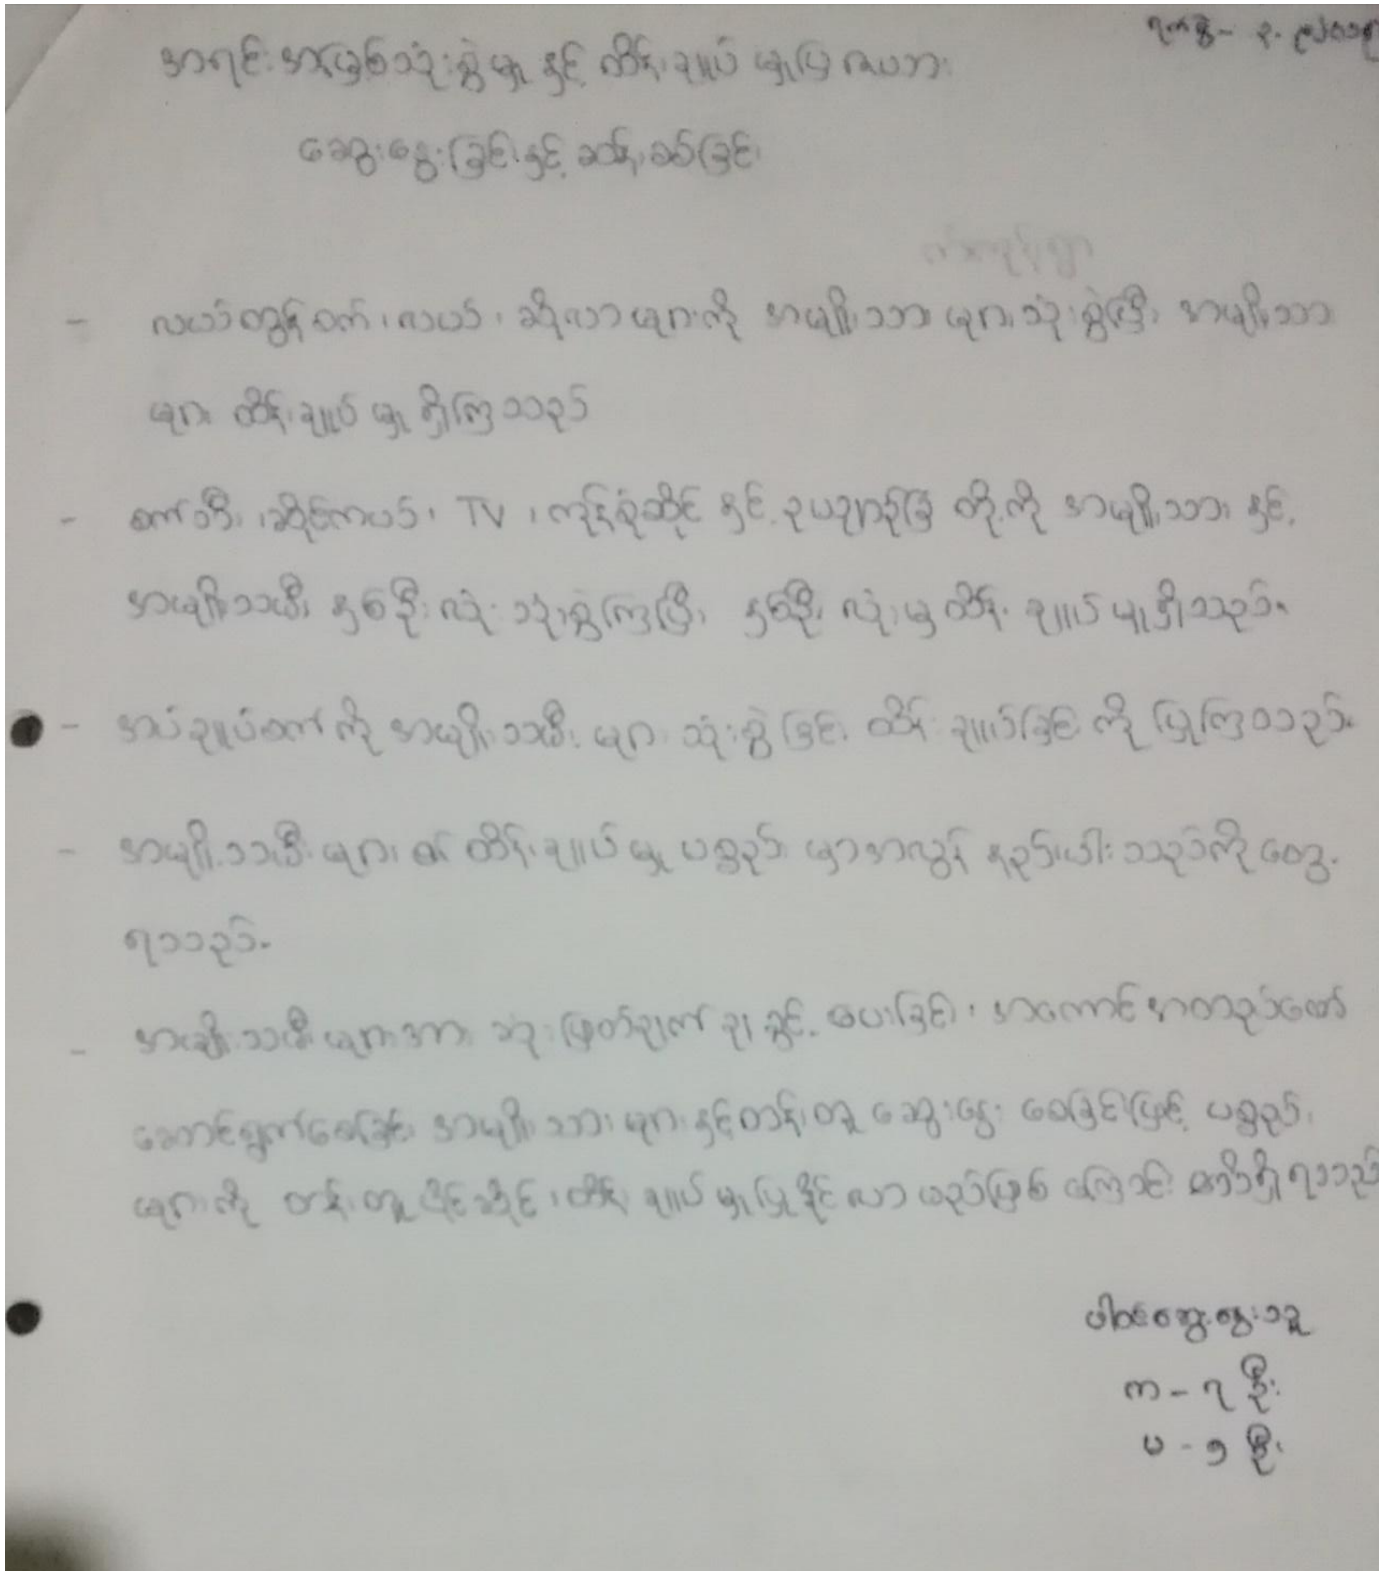 ရက်စွဲ-
အရင်းအမြစ်သုံးစွဲမှု နှင့် ထိန်းချုပ်မှုပြ ဇယား
ဆွေးနွေးခြင်းနှင့် ဆန်းစစ်ခြင်း
- လယ်ထွန်စက်၊ လယ်၊ ဆိုလာများကို အမျိုးသားများသုံးစွဲပြီး အမျိုးသား
များ ထိန်းချုပ်မှု ရှိကြသည်
- စက်ဘီး၊ ဆိုင်ကယ်၊ TV ၊ ကုန်စုံဆိုင် နှင့် ဥယျာဉ်ခြံ တို့ကို အမျိုးသား နှင့်
အမျိုးသမီး နှစ်ဦးလုံး သုံးစွဲကြပြီး နှစ်ဦးလုံးမှ ထိန်းချုပ်မှုရှိသည်။
- အပ်ချုပ်စက်ကို အမျိုးသမီးများ သုံးစွဲခြင်း ထိန်းချုပ်ခြင်းကို ပြုကြသည်။
- အမျိုးသမီးများ၏ ထိန်းချုပ်မှု ပစ္စည်းမှာအလွန် နည်းပါးသည်ကို တွေ့
ရသည်။
- အမျိုးသမီးများအား ဆုံးဖြတ်ချက်ချခွင့် ပေးခြင်း၊ အကောင်အထည်ဖော်
ဆောင်ရွက်စေခြင်း အမျိုးသားများနှင့်တန်းတူ ဆွေးနွေးစေခြင်းဖြင့် ပစ္စည်း
များကို တန်းတူ ပိုင်ဆိုင်၊ ထိန်းချုပ်မှုပြုနိုင်လာမည်ဖြစ်ကြောင်း သိရှိရသည်
ပါဝင်ဆွေးနွေးသူ
ကျ - ၇ ဦး
မ - ၅ ဦး